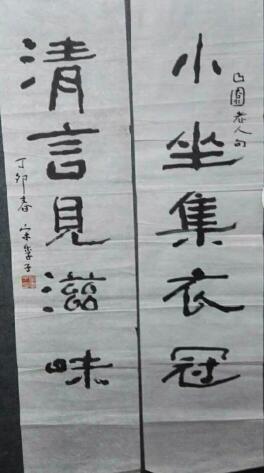 小坐集衣冠
園老人句
清言見滋味
丁卯春 宋季丁